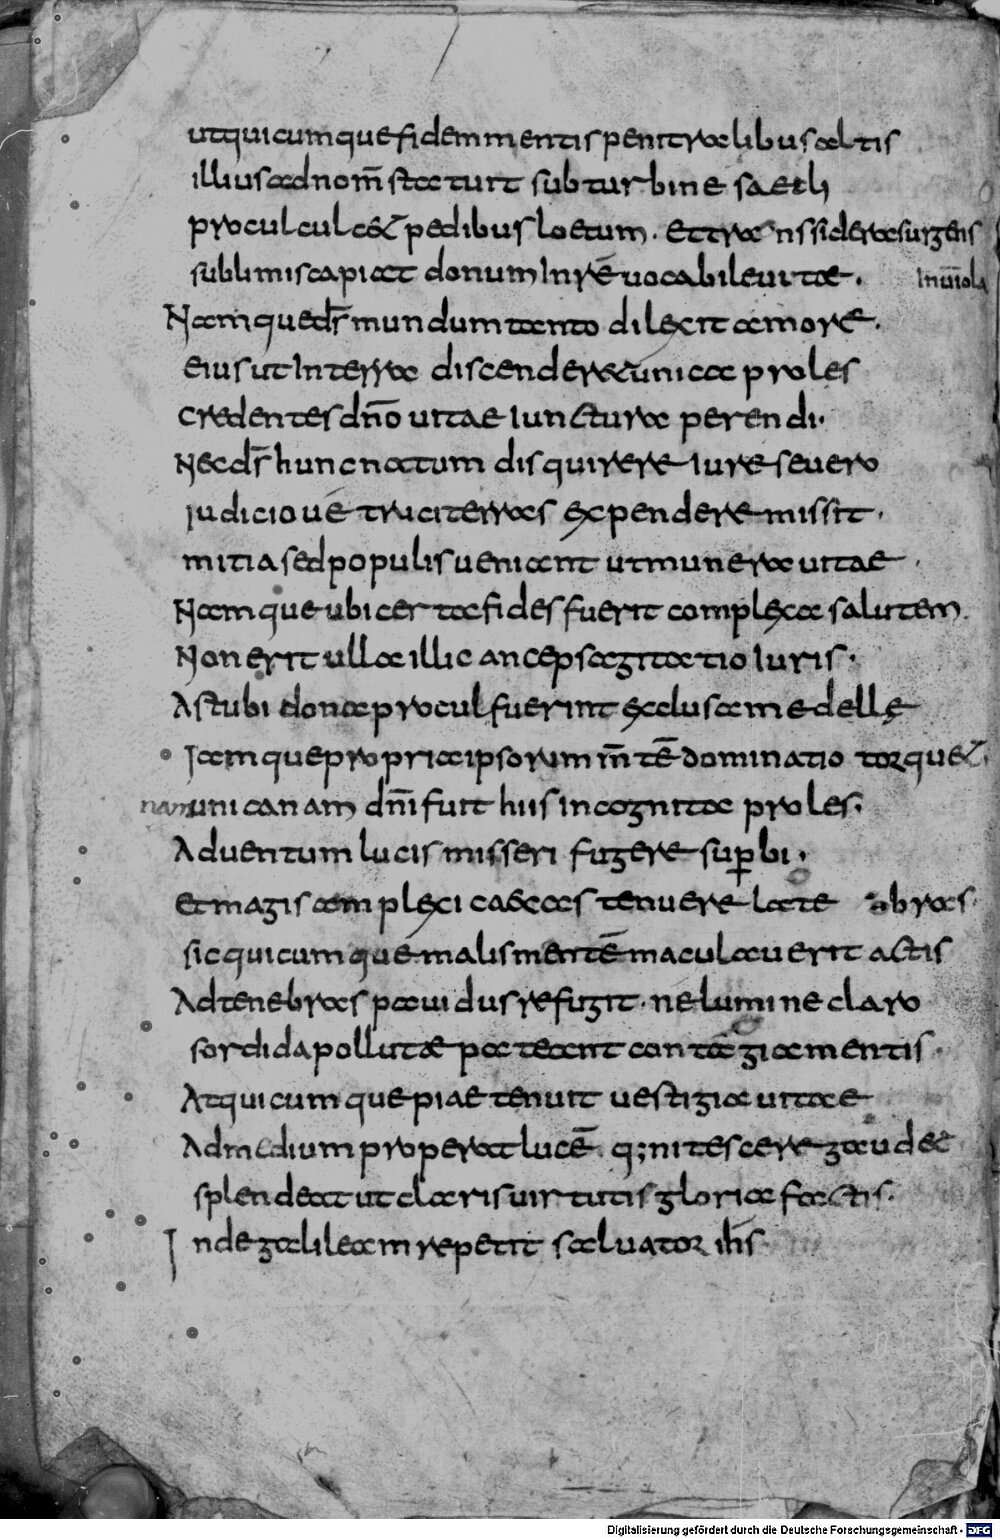 utquicumque fidem mentis penitralibus altis
illius ad nom̄ statuit sub turbine saecli
proculculc& pedibus loetum. et trans sidera surgens
sublimis capiat donum Inrē uocabile uitae. Inuiola
Nam quedr̄ mundum tanto dilexit amore.
eius ut Interra discender& unica proles
credentes dn̄o uitae Iunctura perendi.
Nec dr̄ hunc natum disquirere Iure seuero
Iudicio ué truci terras expendere missit.
mitia sed populis ueniant ut munera uitae.
Namque ubi certa fides fuerit complexa salutem.
Non erit ulla illic anceps agitatio Iuris.
Ast ubi dona procul fuerint exclusa medellę
Iamque propria ipsorum m̄tē dominatio torqu&.
nam unicanam dn̄i fuit hiis incognita proles.
Aduentum lucis misseri fugere sup̱bi.
et magis amplexi caecas tenuere late bras.
sic quicumque malis mentē maculauerit actis
Ad tenebras pauidus refugit. ne lumine claro
sordida pollutæ pateant contagia mentis.
At quicumque piae tenuit uestigia uitae
Ad medium properat lucē. q; nitescere gaudec
splendeat ut claris uirtutis gloria factis.
Inde galileam repetit saluator ih̄s
Digitalisierung gefördert durch die Deutsche Forschungsgemeinschaft - DFG